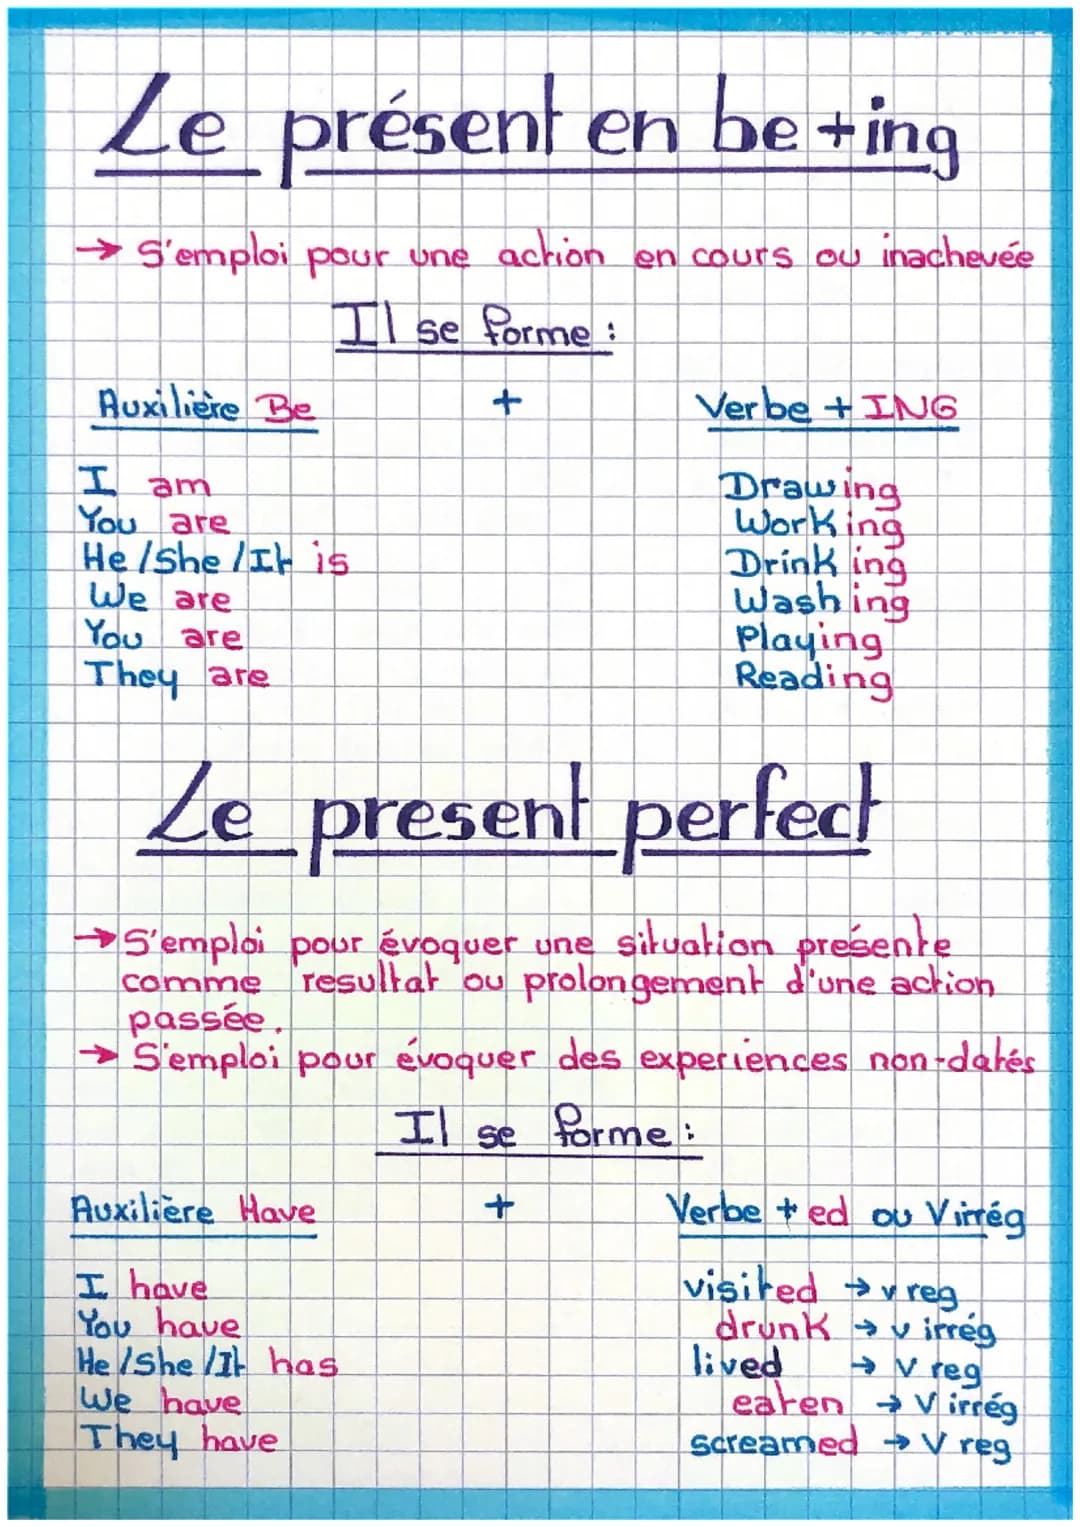 Le présent en be +ing
→ S'emploi pour une action en cours ou inachevée
Il se forme :
Auxilière Be + Verbe + ING
I am Drawing
You are Working
He /She /It is Drinking
We are Washing
You are Playing
They are Reading
Le present perfect
→ S'emploi pour évoquer une situation présente
comme resultat ou prolongement d'une action
passée.
→ S'emploi pour évoquer des experiences non-datés
Il se forme :
Auxilière Have + Verbe + ed ou V irrég
I have visited → v reg
You have drunk → v irrég
He /She /It has lived → V reg
We have eaten → V irrég
They have screamed → V reg